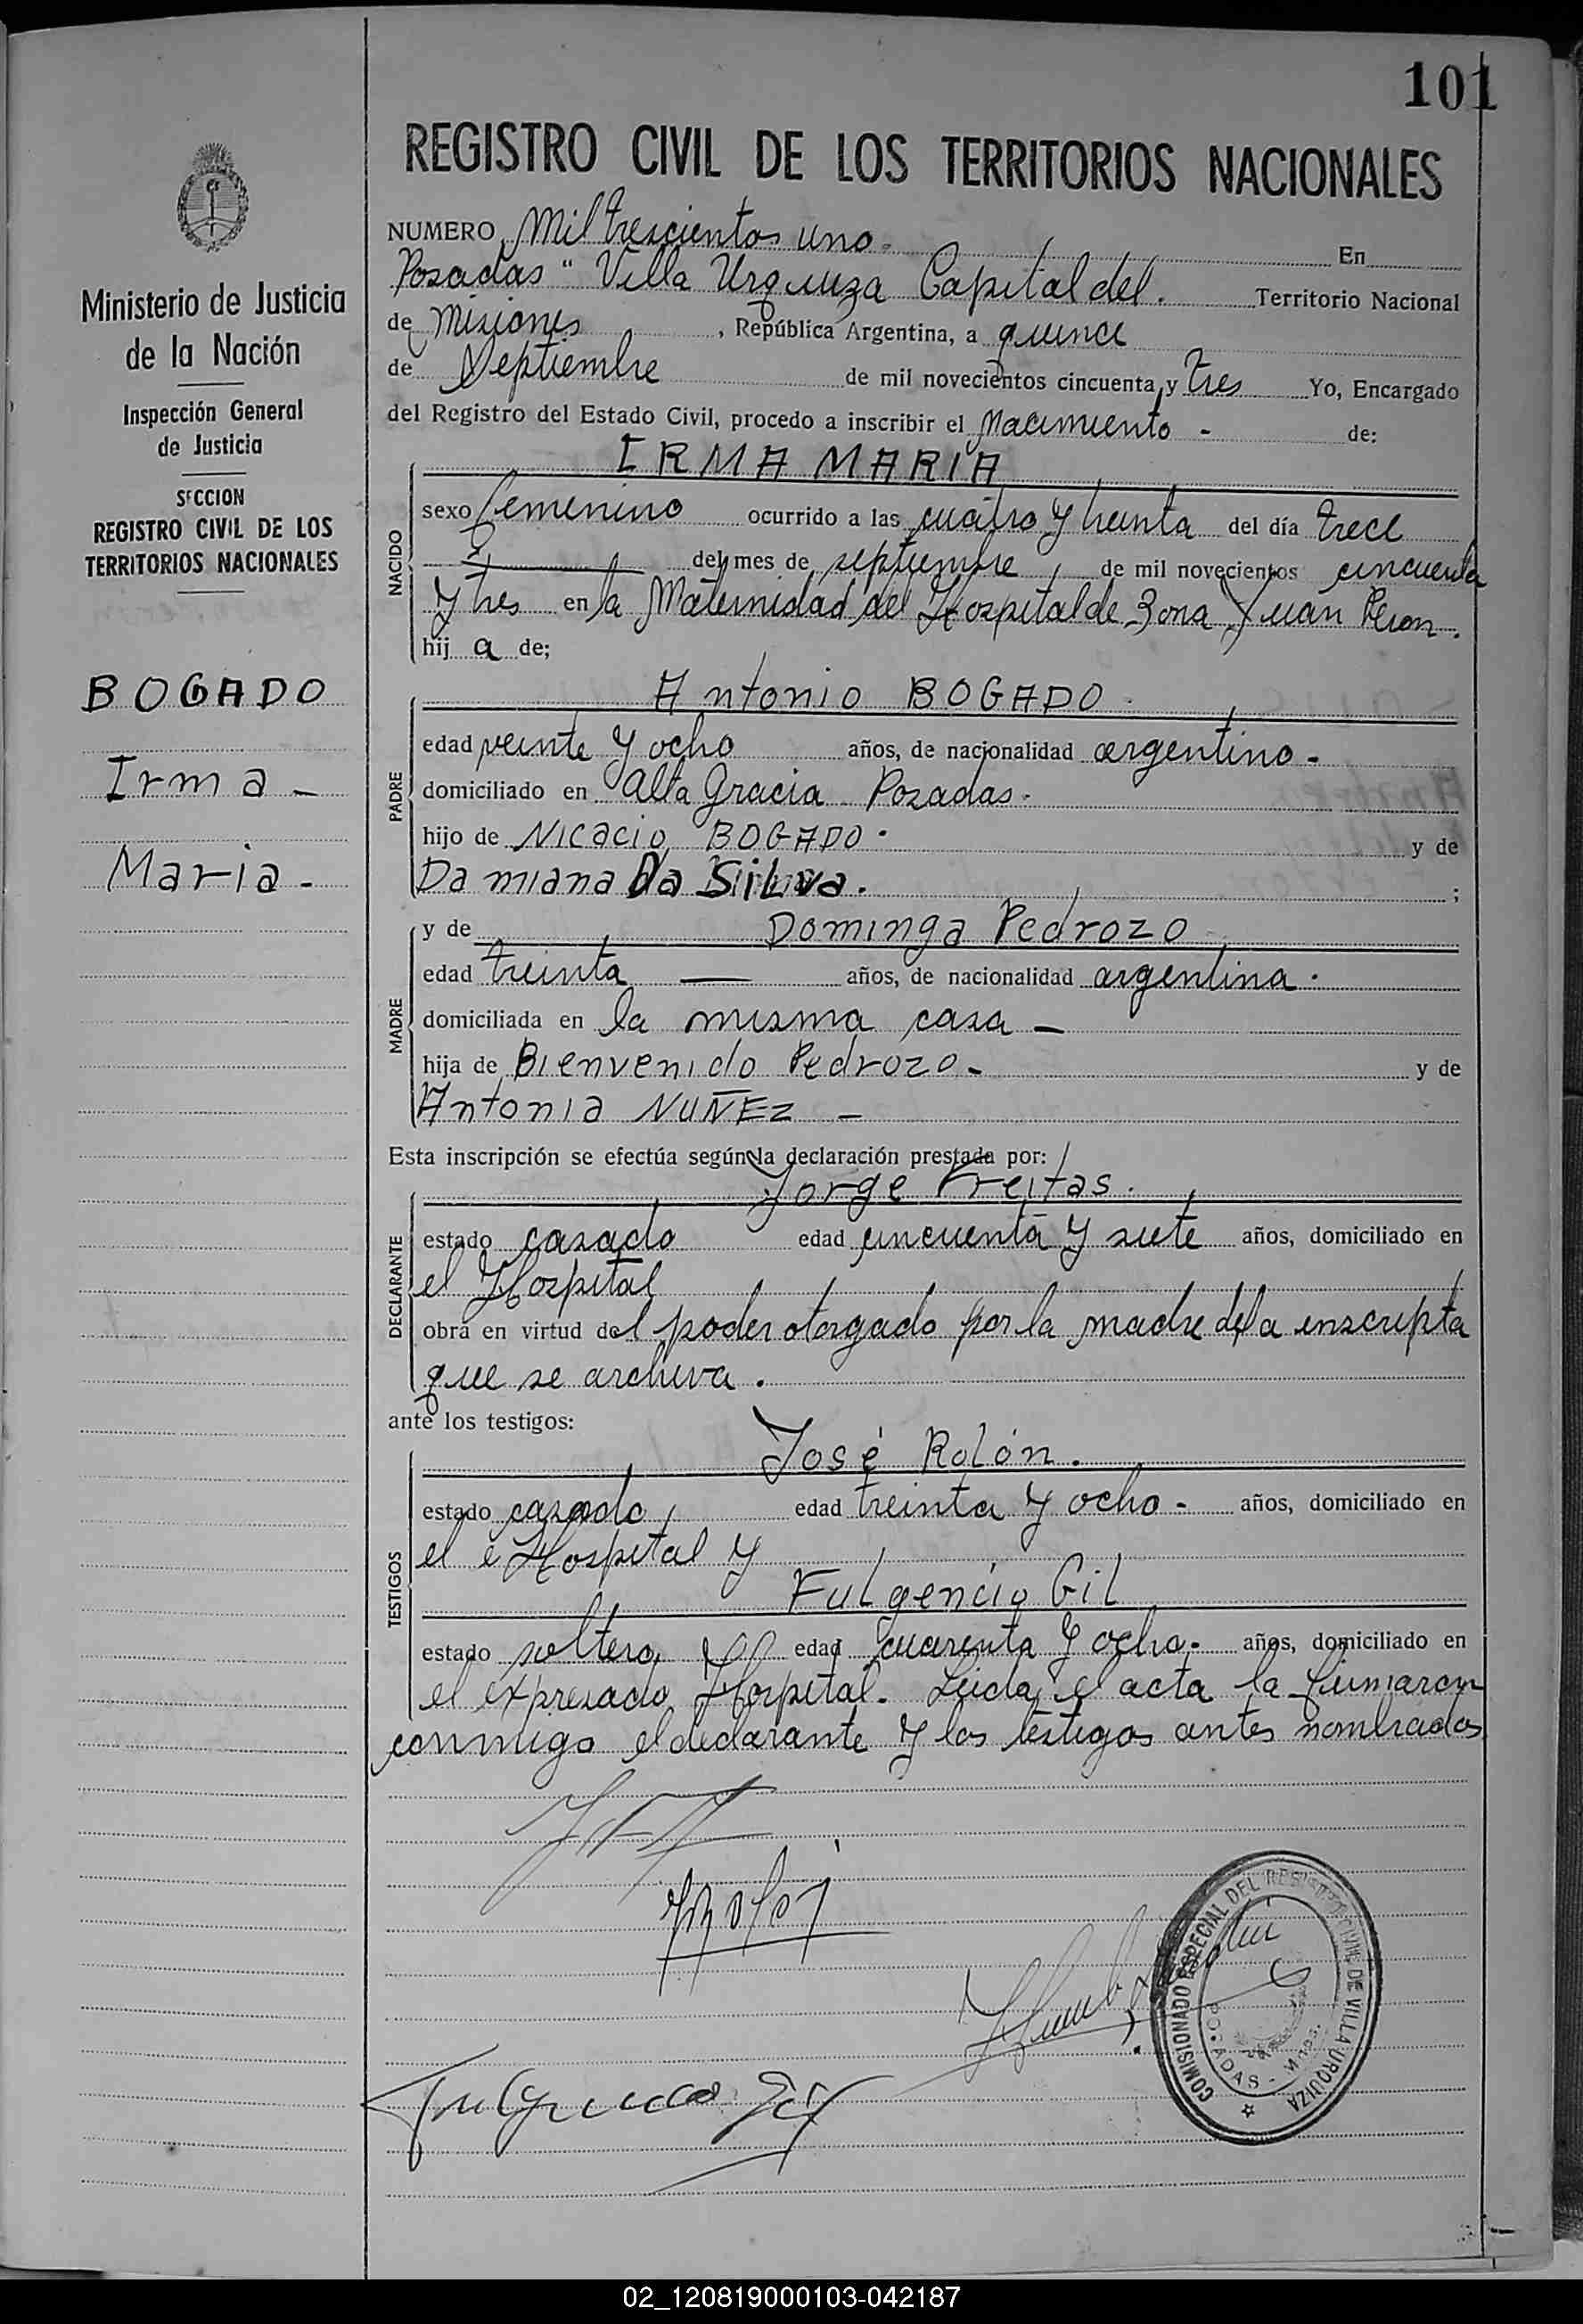 101
REGISTRO CIVIL DE LOS TERRITORIOS NACIONALES
Ministerio de Justicia
de la Nación
Inspección General
de Justicia
SECCION
REGISTRO CIVIL DE LOS
TERRITORIOS NACIONALES
BOGADO
Irma -
Maria -
NUMERO Mil trescientos uno - En
Posadas "Villa Urquiza Capital del. Territorio Nacional
de Misiones, República Argentina, a quince
de Septiembre de mil novecientos cincuenta y tres Yo, Encargado
del Registro del Estado Civil, procedo a inscribir el Nacimiento - de:
IRMA MARIA
NACIDO
sexo femenino ocurrido a las cuatro y treinta del día trece
del mes de septiembre de mil novecientos cincuenta
y tres en la Maternidad del Hospital de Zona Juan Peron.
hij a de;
PADRE
Antonio BOGADO
edad veinte y ocho años, de nacionalidad argentino -
domiciliado en Alta Gracia Posadas -
hijo de Nicacio BOGADO - y de
Damiana Da SiLva. ;
MADRE
y de Dominga Pedrozo
edad treinta — años, de nacionalidad argentina -
domiciliada en la misma casa —
hija de Bienvenido Pedrozo - y de
Antonia NUÑEZ —
Esta inscripción se efectúa según la declaración prestada por:
DECLARANTE
Jorge Freitas.
estado casado edad cincuenta y siete años, domiciliado en
el Hospital
obra en virtud del poder otorgado por la madre de la inscripta
que se archiva.
ante los testigos:
TESTIGOS
José Rolón.
estado casado, edad treinta y ocho - años, domiciliado en
el Hospital y
Fulgencio Gil
estado soltero, edad cuarenta y ocho - años, domiciliado en
el expresado Hospital. Leida el acta la firmaron
conmigo el declarante y los testigos antes nombrados
Fulgencio Gil
COMISIONADO ESPECIAL DEL REGISTRO CIVIL DE VILLA URQUIZA
POSADAS - Mnes.
02_120819000103-042187